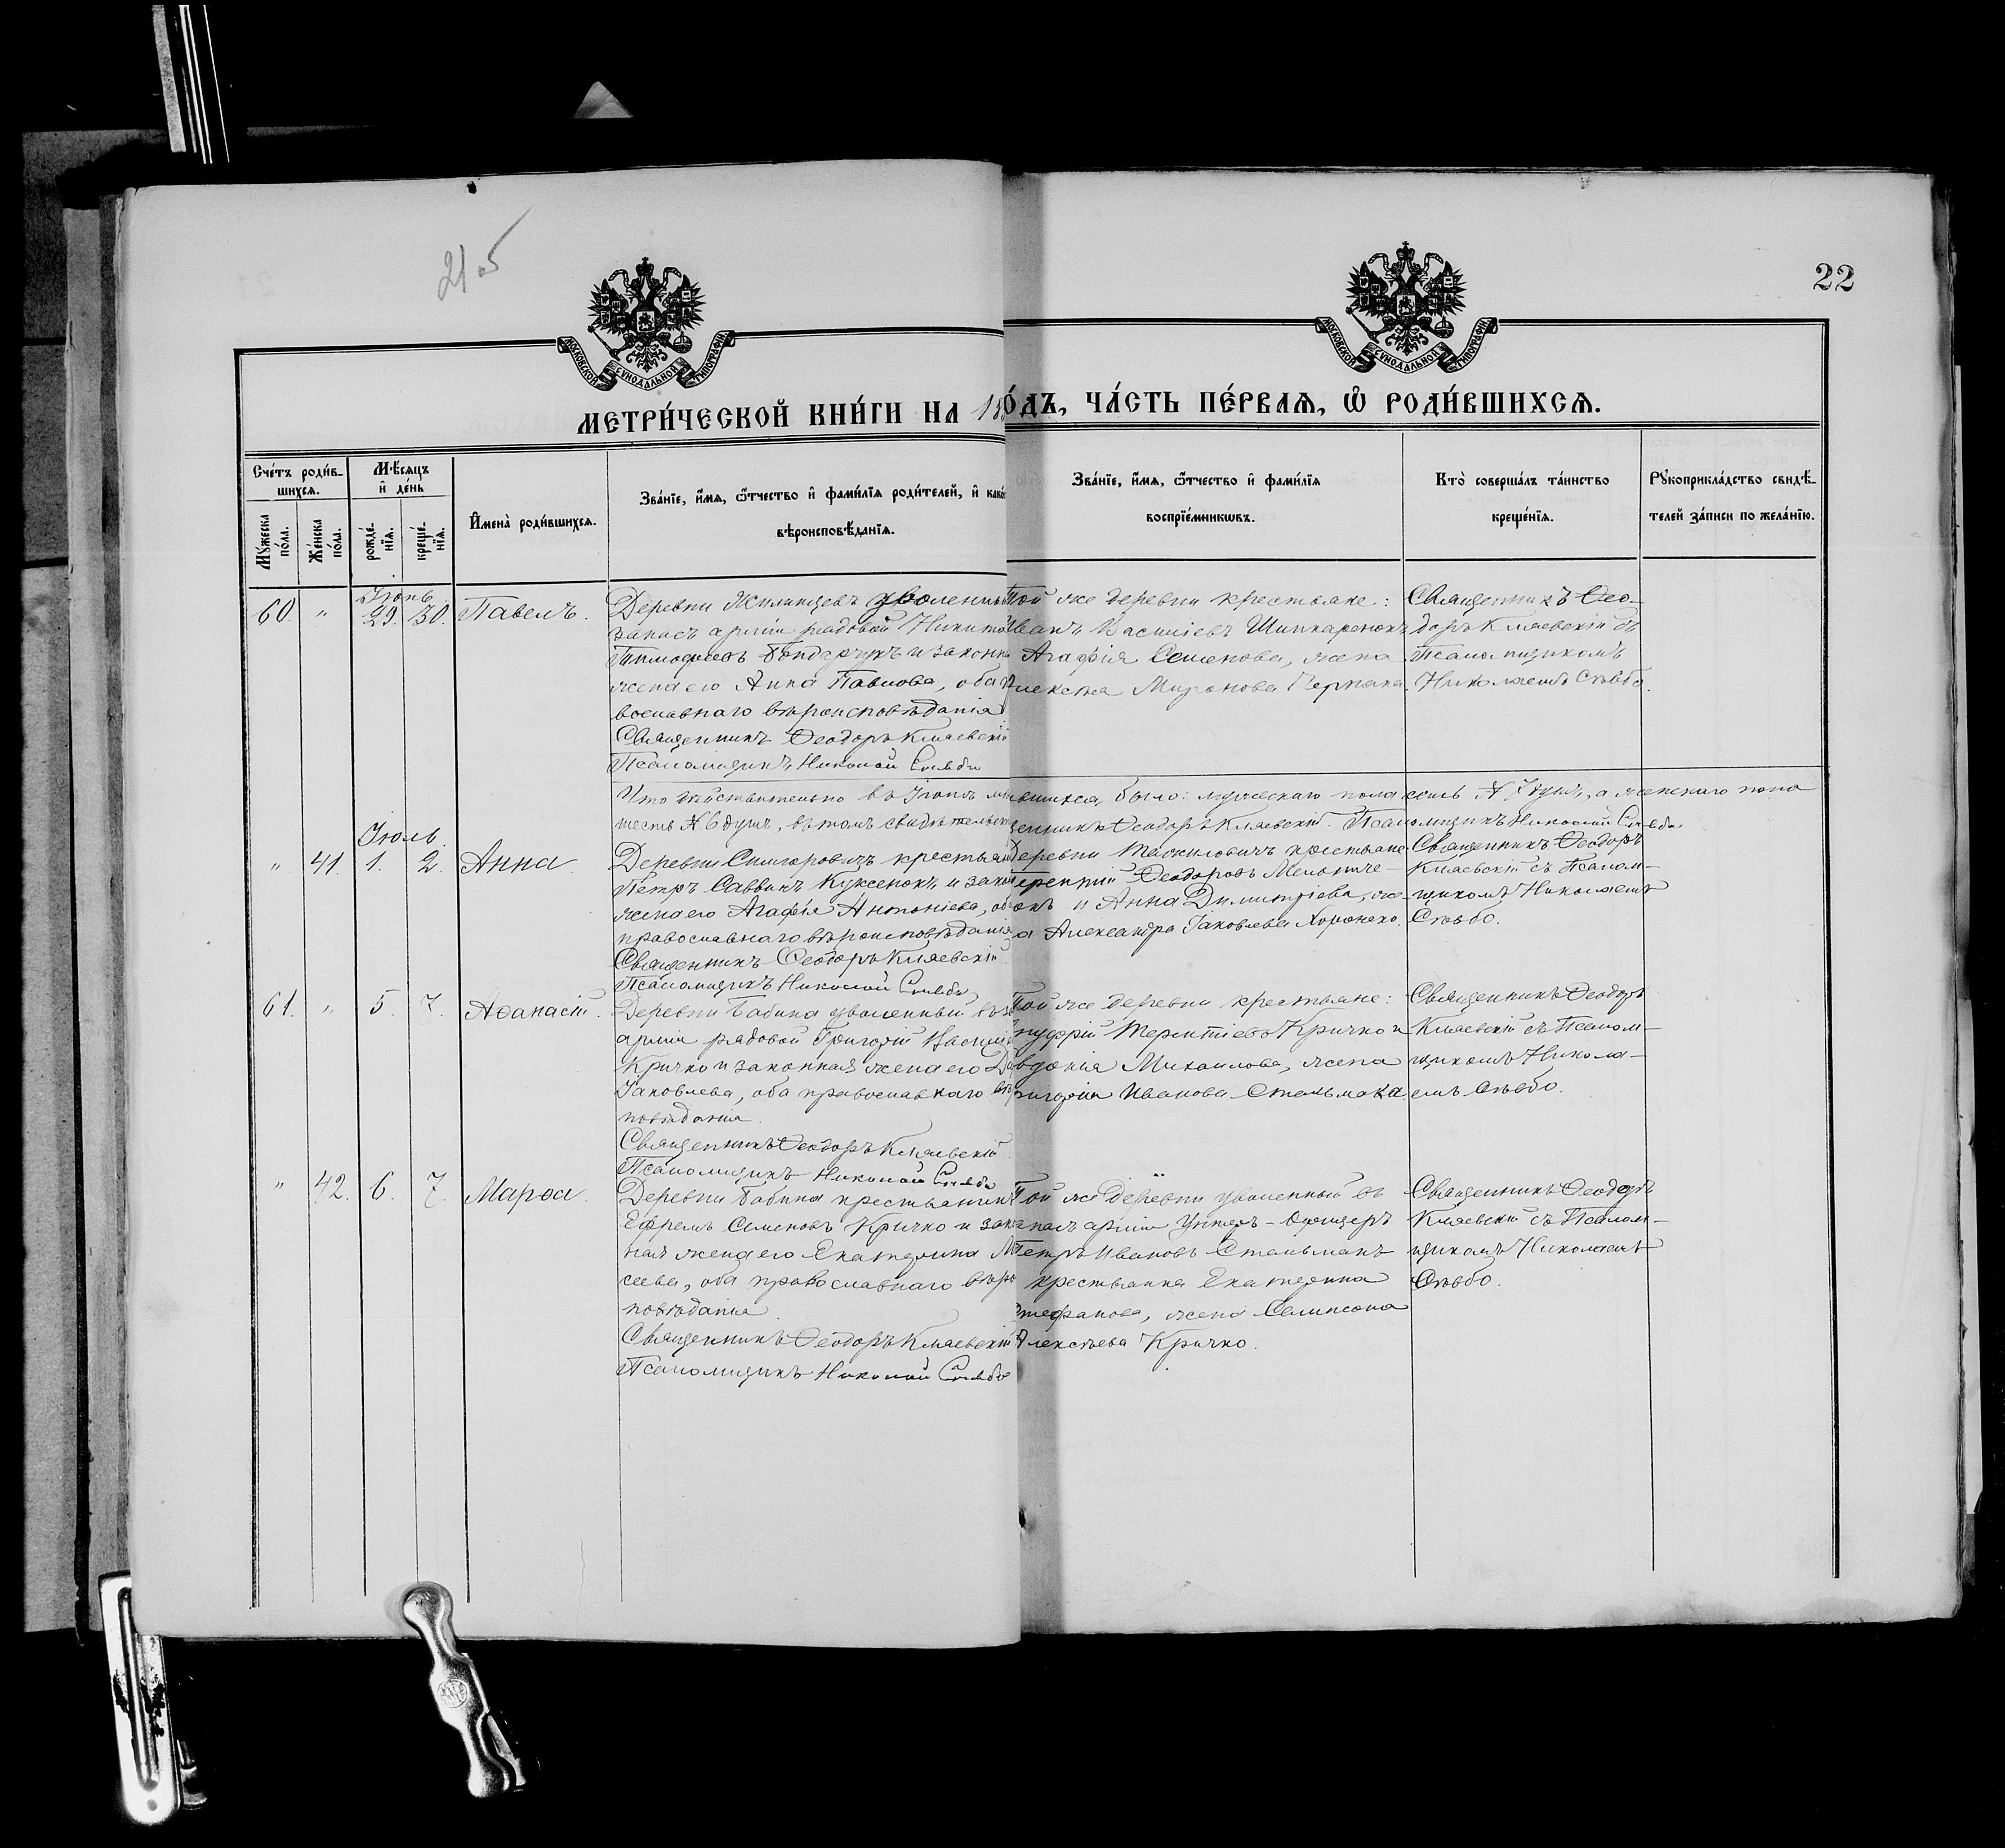 21 об
22
МОСКОВСКОЙ СѴНОДАЛЬНОЙ ТИПОГРАФІИ
МОСКОВСКОЙ СѴНОДАЛЬНОЙ ТИПОГРАФІИ
МЕТРИ́ЧЕСКОЙ КНИ́ГИ НА 18
О́ДЪ, ЧА́СТЬ ПЕ́РВАЯ, Ѡ҆ РОДИ́ВШИХСЯ.
Сче́тъ роди́в-
шихся.
Му́жеска по́ла.
Же́нска по́ла.
Мѣ́сяцъ
и҆ де́нь
рожде́-
нія.
креще́-
нія.
И҆мена̀ роди́вшихся.
Зва́ніе, и҆́мя, ѻ҆́тчество и҆ фами́лія роди́телей, и҆ како́
вѣроисповѣ́данія.
Зва́ніе, и҆́мя, ѻ҆́тчество и҆ фами́лія
воспріе́мниковъ.
Кто̀ соверша́лъ та́инство
креще́нія.
Рꙋкоприкла́дство свидѣ́-
телей за́писи по жела́нію.
Іюнь
60. " 29. 30. Павелъ.
Деревни Жилинцевъ уволенны
запасъ арміи рядовой Никита
Тимофеевъ Бондарукъ и законн
жена его Анна Павлова, оба п
вославнаго вѣроисповѣданія
Священникъ Ѳеодоръ Кляевскій
Псаломщикъ Николай Сльбо
Той же деревни крестьяне:
Иванъ Василіевъ Шипкаренокъ
Агафія Семенова, жена
Алексѣя Миронова
Священникъ Ѳео-
доръ Кляевскій съ
Псаломщикомъ
Николаемъ Сльбо.
Что дѣйствительно въ Іюнѣ
вшихся было: мужескаго пола семь № 7 душъ, а женскаго пола
шесть № 6 душъ, въ томъ свидѣтельств
щенникъ Ѳеодоръ Кляевскій. Псаломщикъ Николай Сльбо
Іюль.
" 41. 1. 2. Анна.
Деревни Снигоровичъ крестьян
Петръ Саввинъ Куксенокъ и закон
жена его Агафія Антоніева, об
православнаго вѣроисповѣданія
Священникъ Ѳеодоръ Кляевскій
Псаломщикъ Николай Сльбо
Деревни крестьяне
Терентій Ѳеодоровъ
и Анна Димитріева, же-
на Александра Іаковлева
Священникъ Ѳеодоръ
Кляевскій съ Псалом-
щикомъ Николаемъ
Сльбо.
61. " 5. 7. Аѳанасій.
Деревни Бабина уволенный въ за
арміи рядовой Григорій Васил
Кричко и законная жена его
Іаковлева, оба православнаго вѣр
повѣданія.
Священникъ Ѳеодоръ Кляевскій
Псаломщикъ Николай Сльбо
Той же деревни крестьяне:
Онуфрій Терентіевъ Кричко и
Евдокія Михаилова, жена
Григорія Иванова Стельмака
Священникъ Ѳеодоръ
Кляевскій съ Псалом-
щикомъ Никола-
емъ Сльбо.
" 42. 6. 7. Марѳа.
Деревни Бабина крестьянинъ
Ефремъ Семеновъ Кричко и зако
ная жена его Екатерина М
сеева, оба православнаго вѣро
повѣданія.
Священникъ Ѳеодоръ Кляевскій
Псаломщикъ Николай Сльбо
Той же деревни уволенный въ
запасъ арміи Унтеръ-Офицеръ
Петръ Ивановъ Стельмакъ
крестьянка Екатерина
Стефанова, жена Сампсона
Алексѣева Кричко.
Священникъ Ѳеодоръ
Кляевскій съ Псалом-
щикомъ Николаемъ
Сльбо.